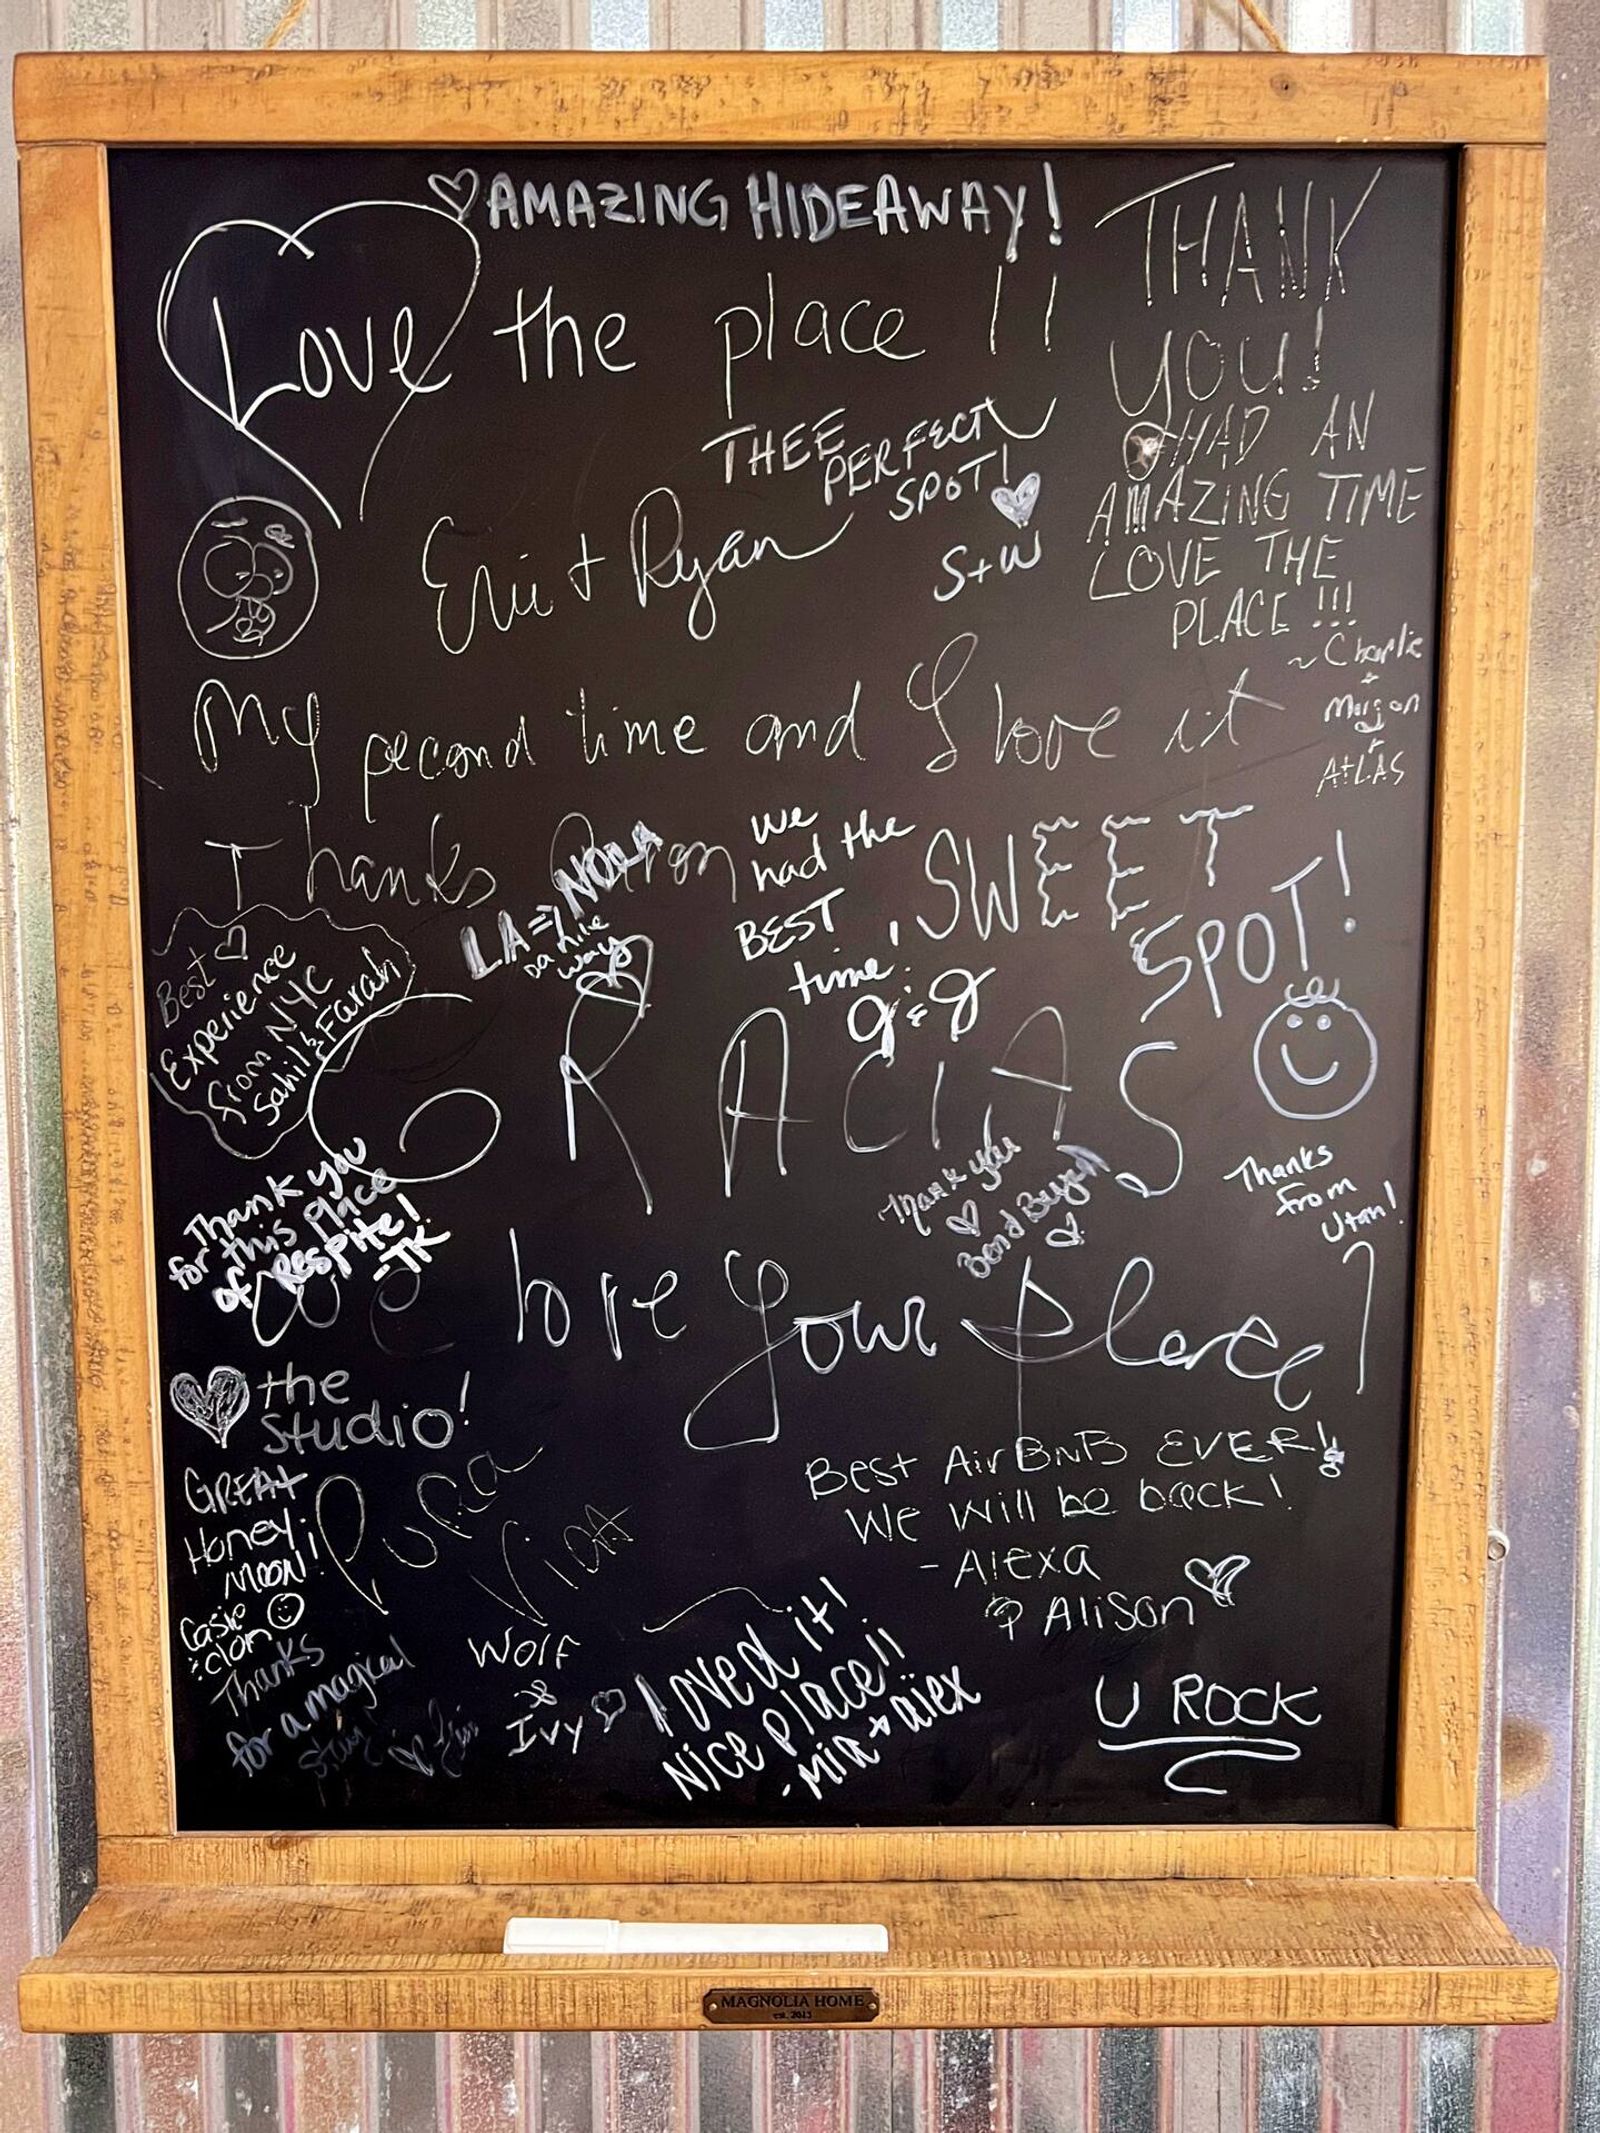 AMAZING HIDEAWAY!
Love the place !!
THANK
YOU!
HAD AN
AMAZING TIME
LOVE THE
PLACE !!!
~ Charlie
+
Morgan
+
AtLAS
THEE
PERFECT
SPOT!
S+W
+ Ryan
My second time and I love it
Thanks
LA => NOLA
Da Nile
way
We
had the
BEST
time!
J & J
SWEET
SPOT!
Best
Experience
from NYC
Sahil & Farah
GRACIAS
Thank you
for this place
of RESPITE!
-TK
Thank you
Thanks
from
Utah!
We love your place!
the
Studio!
GREAt
Honey-
MOON!
Thanks
for a magical
stay
Pura
Vida
Best AirBNB EVER!!
We will be back!
- Alexa
& Alison
Wolf
&
Ivy
Loved it!
Nice place!!
-Mia + alex
U ROCK
MAGNOLIA HOME
est. 2003